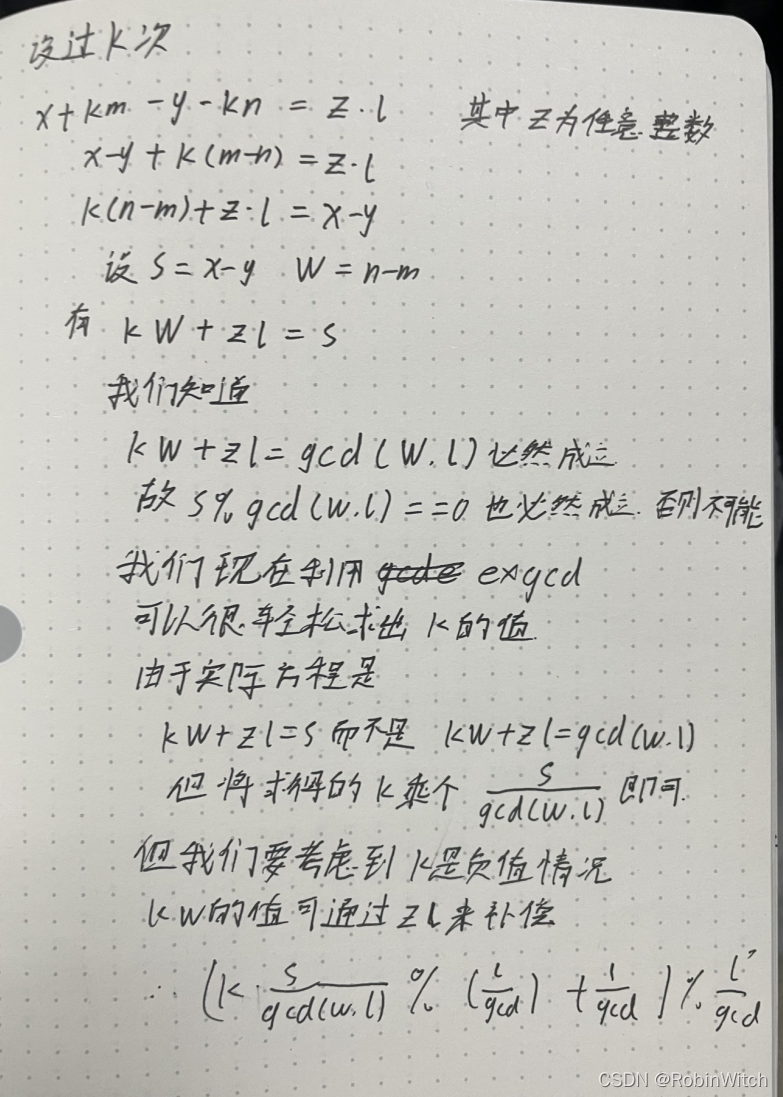 设过k次
x+km-y-kn = z·l 其中z为任意整数
x-y+k(m-n)=z·l
k(n-m)+z·l = x-y
设 S=x-y W=n-m
有 kW+zl=s
我们知道
kW+zl=gcd(W.l)必然成立
故 s%gcd(w.l)==0 也必然成立.否则不可能
我们现在利用 gcde exgcd
可以很轻松求出 k的值.
由于实际方程是
kW+zl=s而不是 kW+zl=gcd(w.l)
但将求得的k乘个 s/gcd(w.l) 即可.
但我们要考虑到k是负值情况
kw的值可通过zl来补偿
∴ (k·s/gcd(w.l) % (l/gcd) + l/gcd)%l/gcd
CSDN @RobinWitch